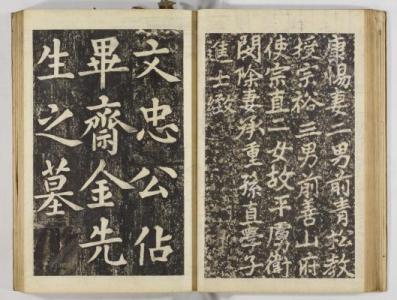 康惕妻二男前青松教
授宗裕三男前善山府
使宗直一女故平虜衛
閔除妻承重孫直學子
進士緻
文忠公佔
畢齋金先
生之墓